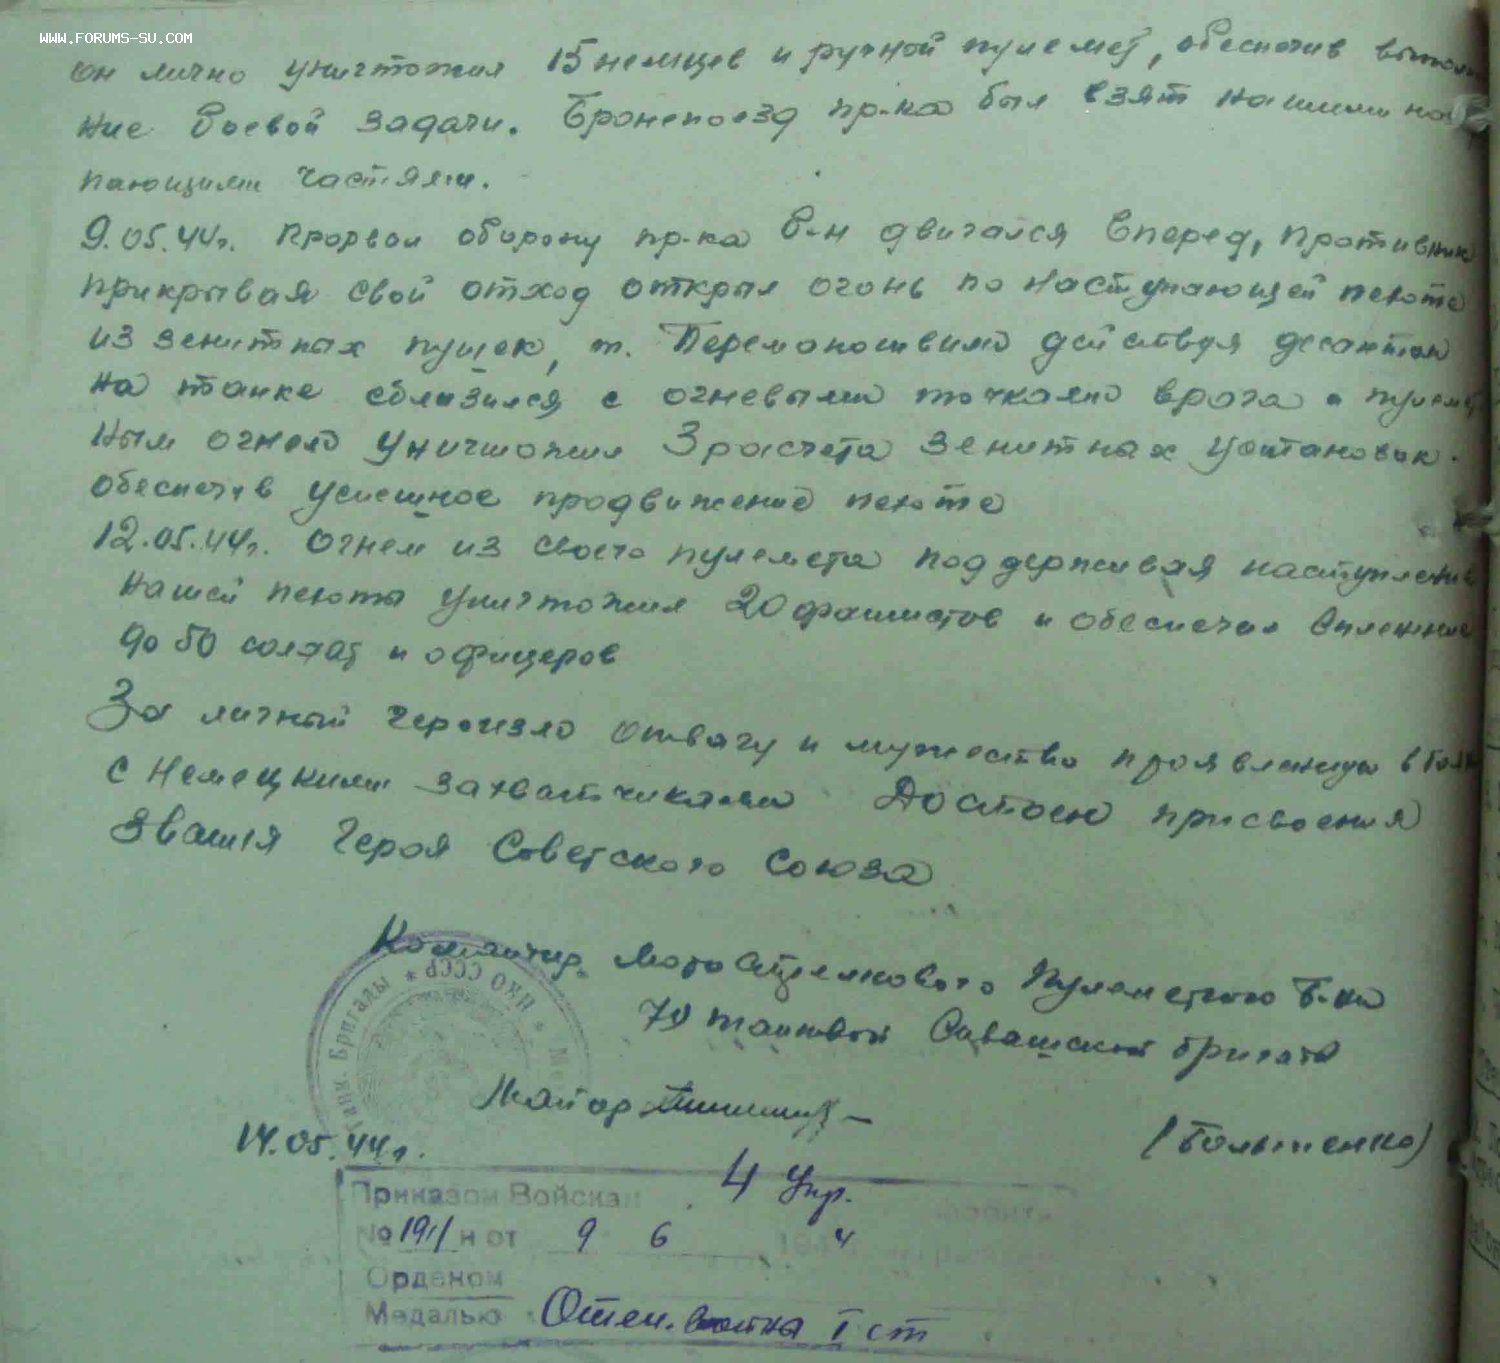 WWW.FORUMS-SU.COM
он лично уничтожил 15 немцев и ручной пулемет, обеспечив выполне
ние боевой задачи. Бронепоезд пр-ка был взят нашими нас
пающими частями.
9.05.44г. прорвал оборону пр-ка б-н двигался вперед, противник
прикрывая свой отход открыл огонь по наступающей пехоте
из зенитных пушек, т. действуя десантом
на танке сблизился с огневыми точками врага и пулемет
ным огнем уничтожил 3 расчета зенитных установок.
обеспечив успешное продвижение пехоте
12.05.44г. Огнем из своего пулемета поддерживая наступление
нашей пехоты уничтожил 20 фашистов и обеспечил пленение
до 50 солдат и офицеров
За личный героизм отвагу и мужество проявленную в боях
с немецкими захватчиками Достоин присвоения
звания Героя Советского Союза
Командир Мотострелкового Пулеметного Б-на
79 танковой Сивашской бригады
Майор
14.05.44г.
НКО СССР * Танк. Бригады
Приказом Войскам 4 Укр.
№ 191/н от 9 6 194 4
Орденом
Медалью Отеч. Война I ст